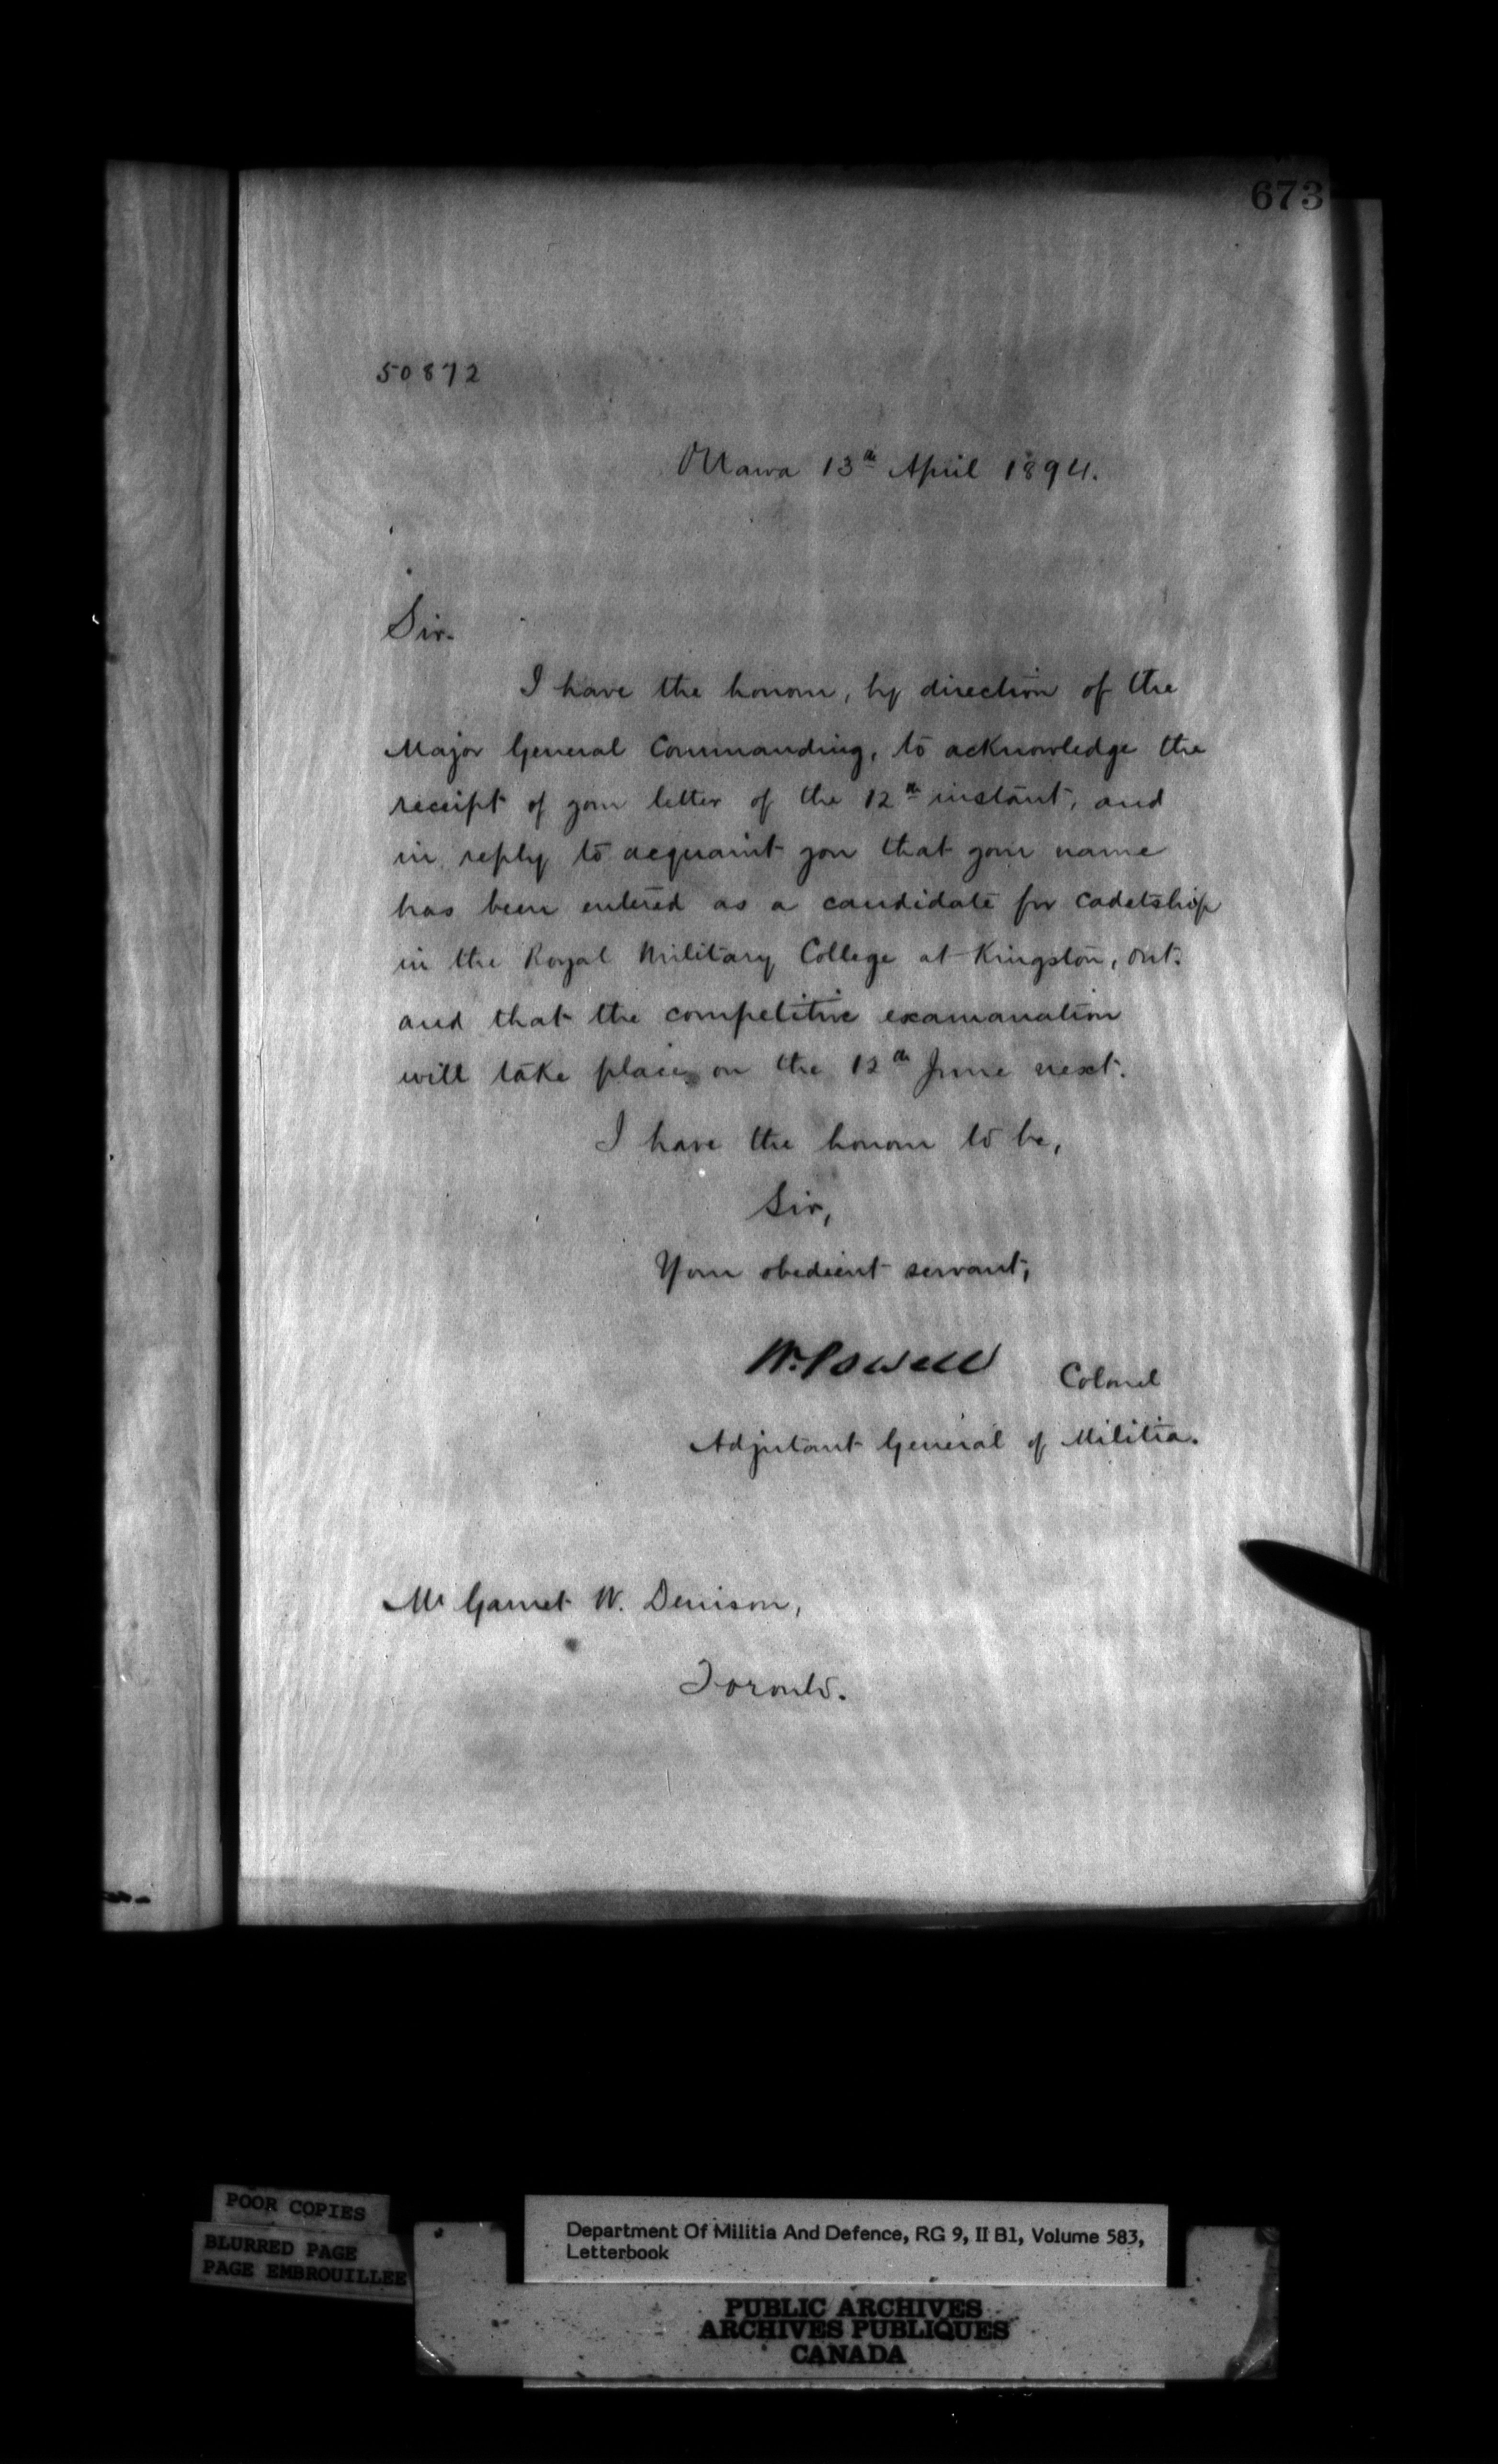 673
50872
Ottawa 13th April 1894.
Sir.
I have the honour, by direction of the
Major General Commanding, to acknowledge the
receipt of your letter of the 12th instant, and
in reply to acquaint you that your name
has been entered as a candidate for cadetship
in the Royal Military College at Kingston, Ont.
and that the competitive examanation
will take place on the 12th June next.
I have the honour to be,
Sir,
Your obedient servant,
W. Powell Colonel
Adjutant General of Militia.
Mr Garnet W. Denison,
Toronto.
POOR COPIES
BLURRED PAGE
PAGE EMBROUILLEE
Department Of Militia And Defence, RG 9, II B1, Volume 583,
Letterbook
PUBLIC ARCHIVES
ARCHIVES PUBLIQUES
CANADA